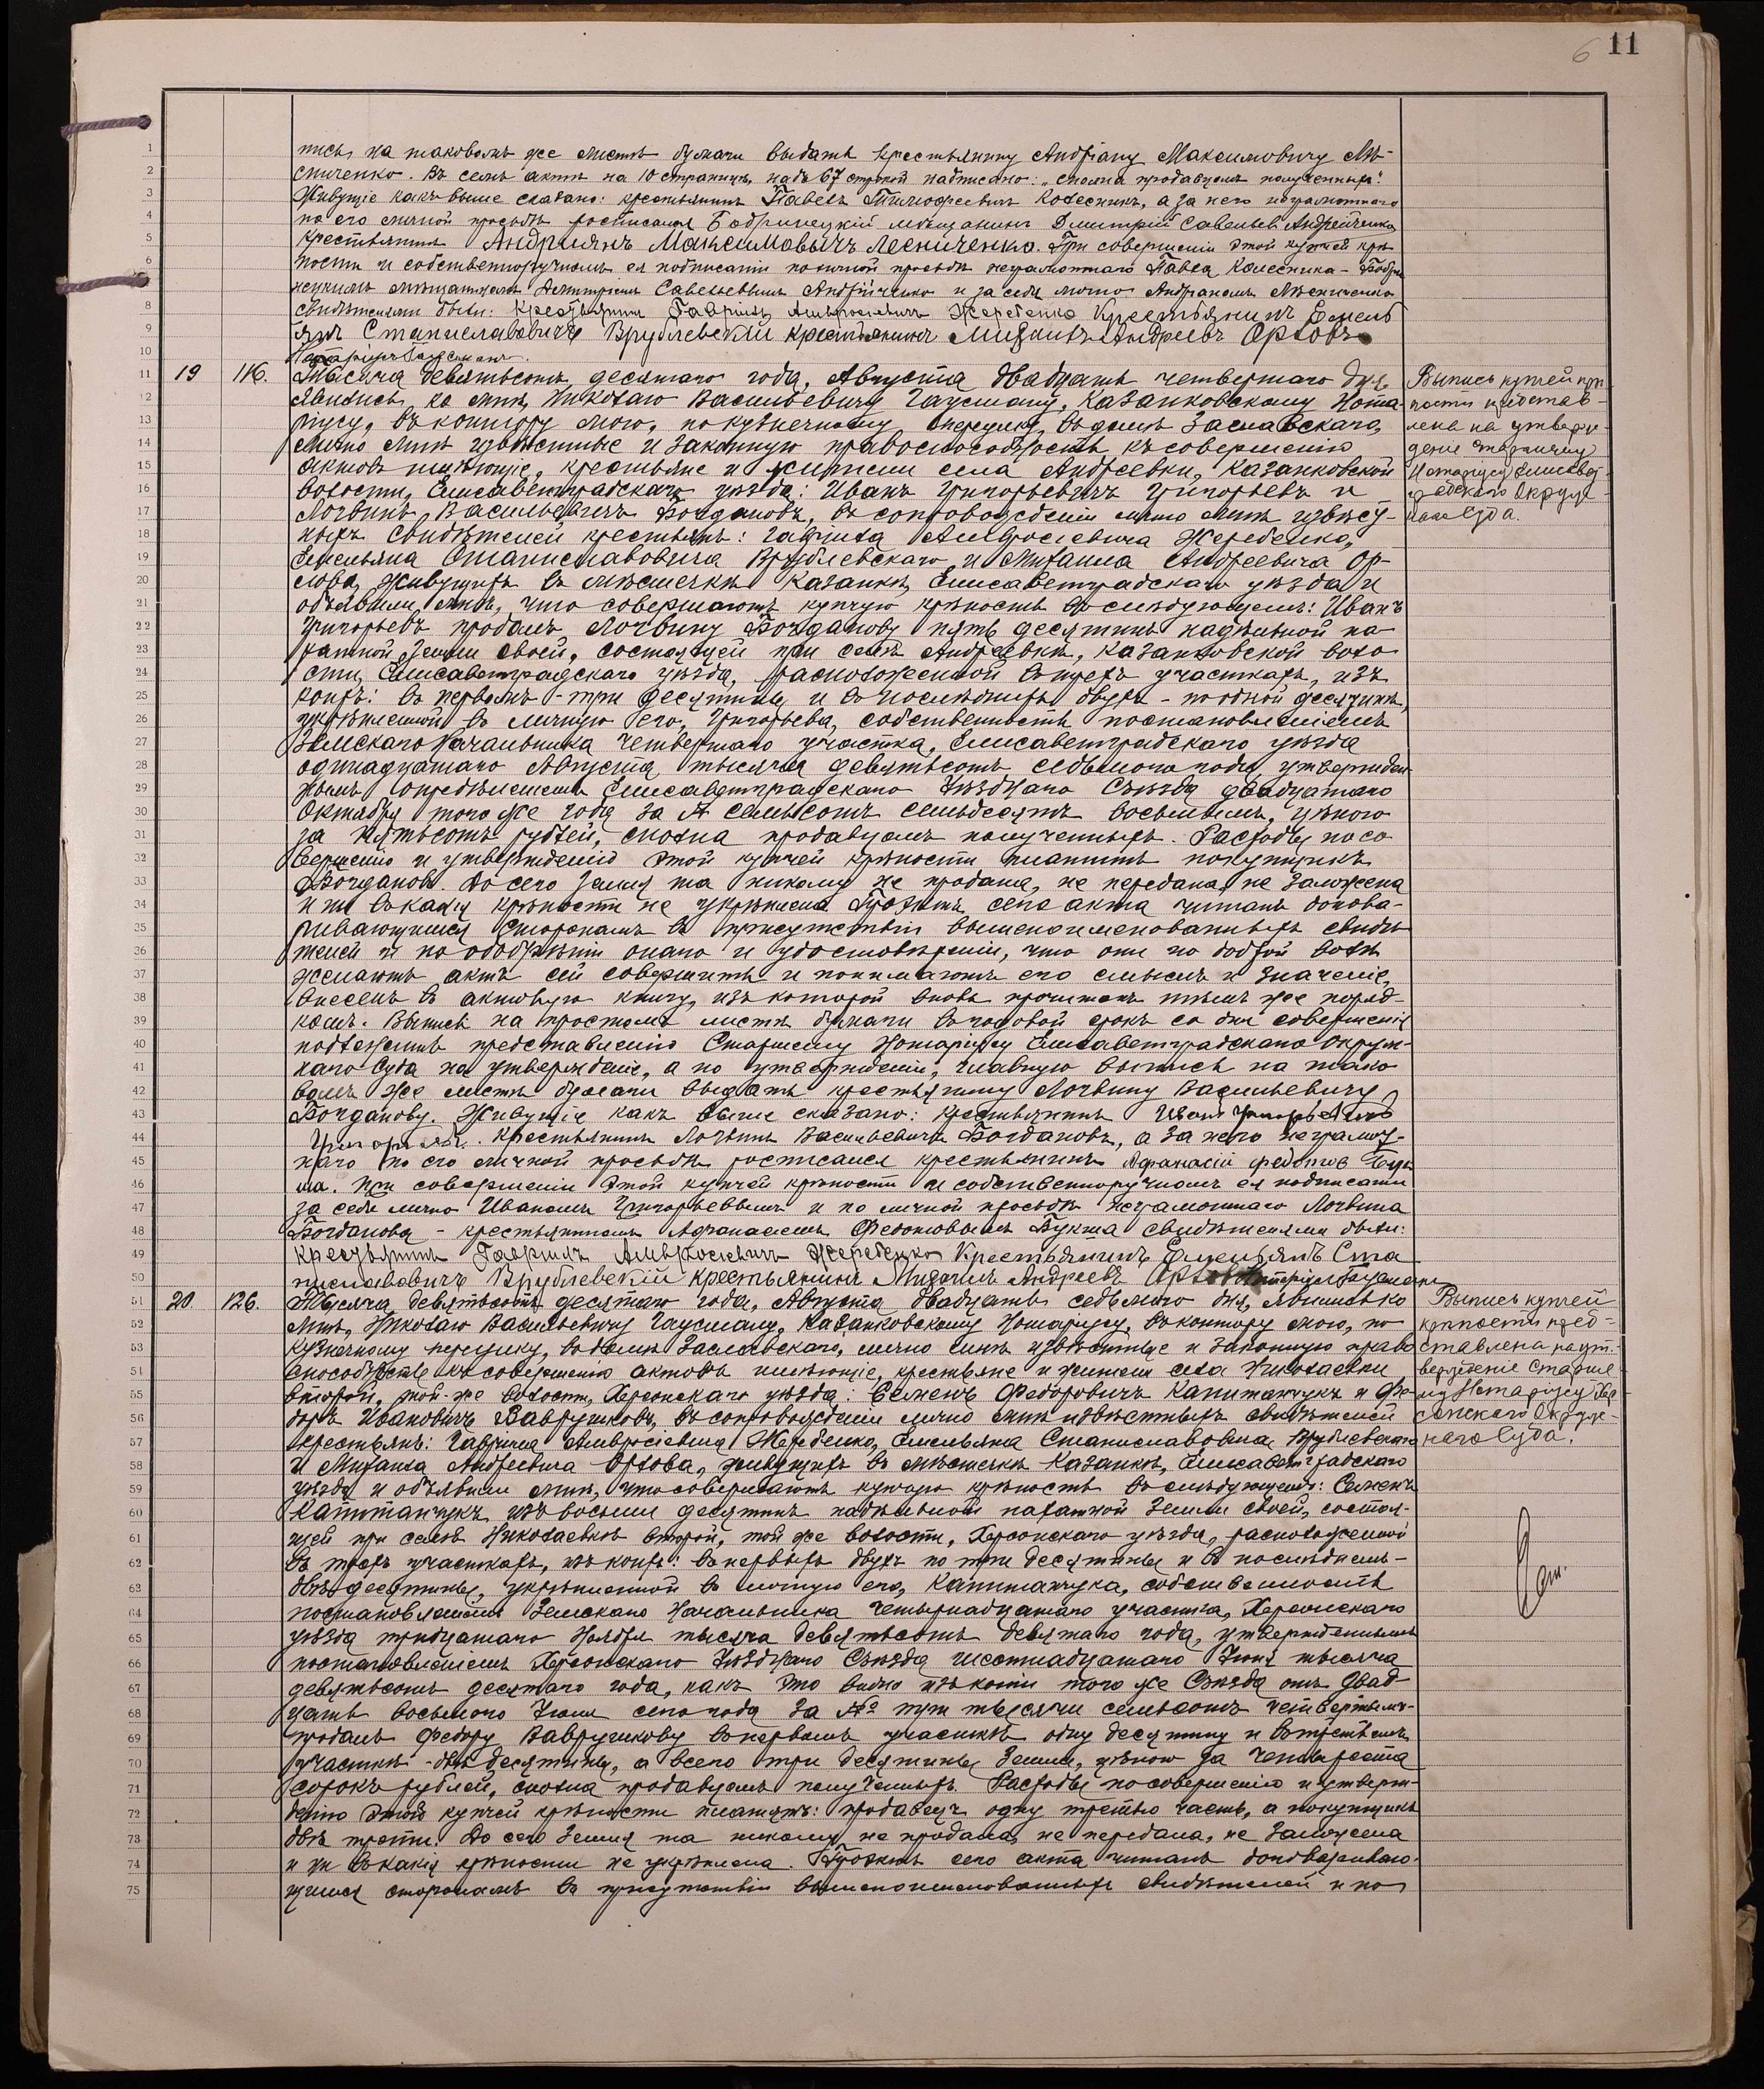 11
6
пись на таковомъ же листѣ бумаги выдать крестьянину Андріану Максимовичу Лѣ-
сниченко. Въ семъ актѣ на 10 страницѣ, надъ 67 строкой надписано: „сполна продавцомъ полученныхъ“.
Живущіе какъ выше сказано: крестьянинъ Павелъ Тимофеевичъ Колесникъ, а за него неграмотнаго
по его личной просьбѣ росписался Бобринецкій мѣщанинъ Дмитрій Савельевъ Андрейченко
крестьянинъ Андриянъ Максимовычъ Лесниченко. При совершеніи этой купчей крѣ-
пости и собственноручномъ ея подписаніи по личной просьбѣ неграмотнаго Павла Колесника - Бобри
нецкимъ мѣщаниномъ Дмитріемъ Савельевымъ Андрійченко и за себя лично Андріаномъ Лѣсниченко
свидѣтелями были: Крестьянинъ Гавриилъ Амвросіевичъ Жеребенко Крестьянинъ Емель
янъ Станиславовичъ Врублевскій крестьянинъ Михаилъ Андреевъ Орловъ
Нотаріусъ Гаусманъ.
19 116. Тысяча девятьсотъ десятаго года, Августа двадцать четвертаго дня
явились ко мнѣ, Николаю Васильевичу Гаусману, Казанковскому Нота-
ріусу, въ контору мою, по кузнечному переулку, въ домѣ Заславскаго,
лично мнѣ извѣстные и законную правоспособность къ совершенію
актовъ имѣющіе, крестьяне и жители села Андреевки, Казанковской
волости, Елисаветградскаго уѣзда: Иванъ Григорьевичъ Григорьевъ и
Логвинъ Васильевичъ Богдановъ, въ сопровожденіи лично мнѣ извѣст-
ныхъ свидѣтелей крестьянъ: Гавріила Амвросіевича Жеребенко,
Емельяна Станиславовича Врублевскаго и Михаила Андреевича Ор-
лова, живущихъ въ мѣстечкѣ Казанкѣ, Елисаветградскаго уѣзда и
объявили мнѣ, что совершаютъ купчую крѣпость въ слѣдующемъ: Иванъ
Григорьевъ продалъ Логвину Богданову пять десятинъ надѣльной па-
хатной земли своей, состоящей при селѣ Андреевкѣ, Казанковской воло
сти, Елисаветградскаго уѣзда, расположенной въ трехъ участкахъ, изъ
коихъ: въ первомъ - три десятины и въ послѣднихъ двухъ - по одной десятинѣ,
укрѣпленной въ личную его, Григорьева, собственность постановленіемъ
Земскаго Начальника четвертаго участка, Елисаветградскаго уѣзда
одинадцатаго Августа тысяча девятьсотъ седьмого года, утвержден
нымъ опредѣленіемъ Елисаветградскаго Уѣзднаго Съѣзда двадцатаго
Октября того же года за № семьсотъ семьдесятъ восьмымъ, цѣною
за пятьсотъ рублей, сполна продавцомъ полученныхъ. Расходы по со
вершенію и утвержденію этой купчей крѣпости платитъ покупщикъ
Богдановъ. До сего земля та никому не продана, не передана, не заложена
и ни въ какія крѣпости не укрѣплена. Проэктъ сего акта читанъ догова-
ривающимся сторонамъ въ присутствіи вышепоименованныхъ свидѣ
телей и по одобреніи онаго и удостовѣреніи, что они по доброй волѣ
желаютъ актъ сей совершить и понимаютъ его смыслъ и значеніе,
внесенъ въ актовую книгу, изъ которой вновь прочитанъ тѣмъ же поряд-
комъ. Выпись на простомъ листѣ бумаги въ годовой срокъ со дня совершенія
подлежитъ представленію Старшему Нотаріусу Елисаветградскаго Окруж-
наго Суда на утвержденіе, а по утвержденіи, главную выпись на тако
вомъ же листѣ бумаги выдать крестьянину Логвину Васильевичу
Богданову. Живущіе какъ выше сказано: крестьянинъ Иванъ Григорьевичъ
Григорьевъ. Крестьянинъ Логвинъ Васильевичъ Богдановъ, а за него неграмот-
наго по его личной просьбѣ росписался крестьянинъ Афанасій Федотовъ Букш
ша. При совершеніи этой купчей крѣпости и собственноручномъ ея подписаніи
за себя лично Иваномъ Григорьевымъ и по личной просьбѣ неграмотнаго Логвина
Богданова - крестьяниномъ Афанасіемъ Федотовымъ Букша свидѣтелями были:
Крестьянинъ Гавриилъ Амвросіевичъ Жеребенко Крестьянинъ Емельянъ Ста
ниславовичъ Врублевскій крестьянинъ Михаилъ Андреевъ Орловъ Нотаріусъ Гаусманъ
Выпись купчей крѣ-
пости представ-
лена на утверж-
деніе Старшему
Нотаріусу Елисавет-
градскаго Окруж-
наго Суда.
20. 126. Тысяча девятьсотъ десятаго года, Августа двадцать седьмого дня, явились ко
мнѣ, Николаю Васильевичу Гаусману, Казанковскому Нотаріусу, въ контору мою, по
кузнечному переулку, въ домѣ Заславскаго, лично мнѣ извѣстные и законную право
способность къ совершенію актовъ имѣющіе, крестьяне и жители села Николаевки
второй, той-же волости, Херсонскаго уѣзда: Семенъ Федоровичъ Капитанчукъ и Фе-
доръ ИвановичъВаврушковъ, въ сопровожденіи лично мнѣ извѣстныхъ свидѣтелей
крестьянъ: Гавріила Амвросіевича Жеребенко, Емельяна Станиславовича Врублевскаго
и Михаила Андреевича Орлова, живущихъ въ мѣстечкѣ Казанкѣ, Елисаветградскаго
уѣзда и объявили мнѣ, что совершаютъ купчую крѣпость въ слѣдующемъ: Семенъ
Капитанчукъ изъ восьми десятинъ надѣльной пахатной земли своей, состоя-
щей при селѣ Николаевкѣ второй, той же волости, Херсонскаго уѣзда, расположенной
въ трехъ участкахъ, изъ коихъ: въ первыхъ двухъ по три десятины и въ послѣднемъ -
двѣ десятины, укрѣпленной въ личную его, Капитанчука, собственность
постановленіемъ Земскаго Начальника четырнадцатаго участка, Херсонскаго
уѣзда тридцатаго Ноября тысяча девятьсотъ девятаго года, утвержденнымъ
постановленіемъ Херсонскаго Уѣзднаго Съѣзда шестнадцатаго Іюня тысяча
девятьсотъ десятаго года, какъ это видно изъ копіи того же Съѣзда отъ двад-
цать восьмого Іюня сего года за № три тысячи семьсотъ четвертымъ-
продалъ Федору Ваврушкову въ первомъ участкѣ одну десятину и въ третьемъ
участкѣ - двѣ десятины, а всего три десятины земли, цѣною за четыреста
сорокъ рублей, сполна продавцомъ полученныхъ. Расходы по совершенію и утверж-
денію этой купчей крѣпости платятъ: продавецъ одну третью часть, а покупщикъ
двѣ трети. До сего земля та никому не продана, не передана, не заложена
и ни въ какія крѣпости не укрѣплена. Проэктъ сего акта читанъ договариваю-
щимся сторонамъ въ присутствіи вышепоименованныхъ свидѣтелей и по
Выпись купчей
крѣпости пред-
ставлена на ут-
вержденіе Старше-
му Нотаріусу Хер-
сонскаго Окруж-
наго Суда.